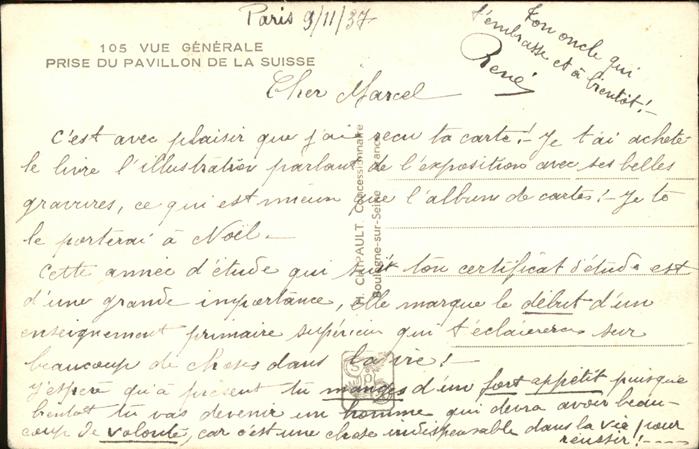 Paris 9/11/37
105 VUE GÉNÉRALE
PRISE DU PAVILLON DE LA SUISSE
Cher Marcel
C'est avec plaisir que j'ai recu ta carte! Je t'ai acheté
le livre l'illustration parlant de l'exposition avec ses belles
gravures, ce qui est mieux que l'album de cartes! Je te
le porterai à Noël.
Cette année d'étude qui suit ton certificat d'étude est
d'une grande importance, elle marque le début d'un
enseignement primaire supérieur qui t'éclairera sur
beaucoup de choses dans la vie!
J'espère qu'à présent tu manges d'un fort appétit puisque
bientôt tu vas devenir un homme qui devra avoir beau-
coup de volonté, car c'est une chose indispensable dans la vie pour
réussir!
Ton oncle qui
t'embrasse et à bientôt!
René
H. CHIPAULT, Concessionnaire
Boulogne-sur-Seine France